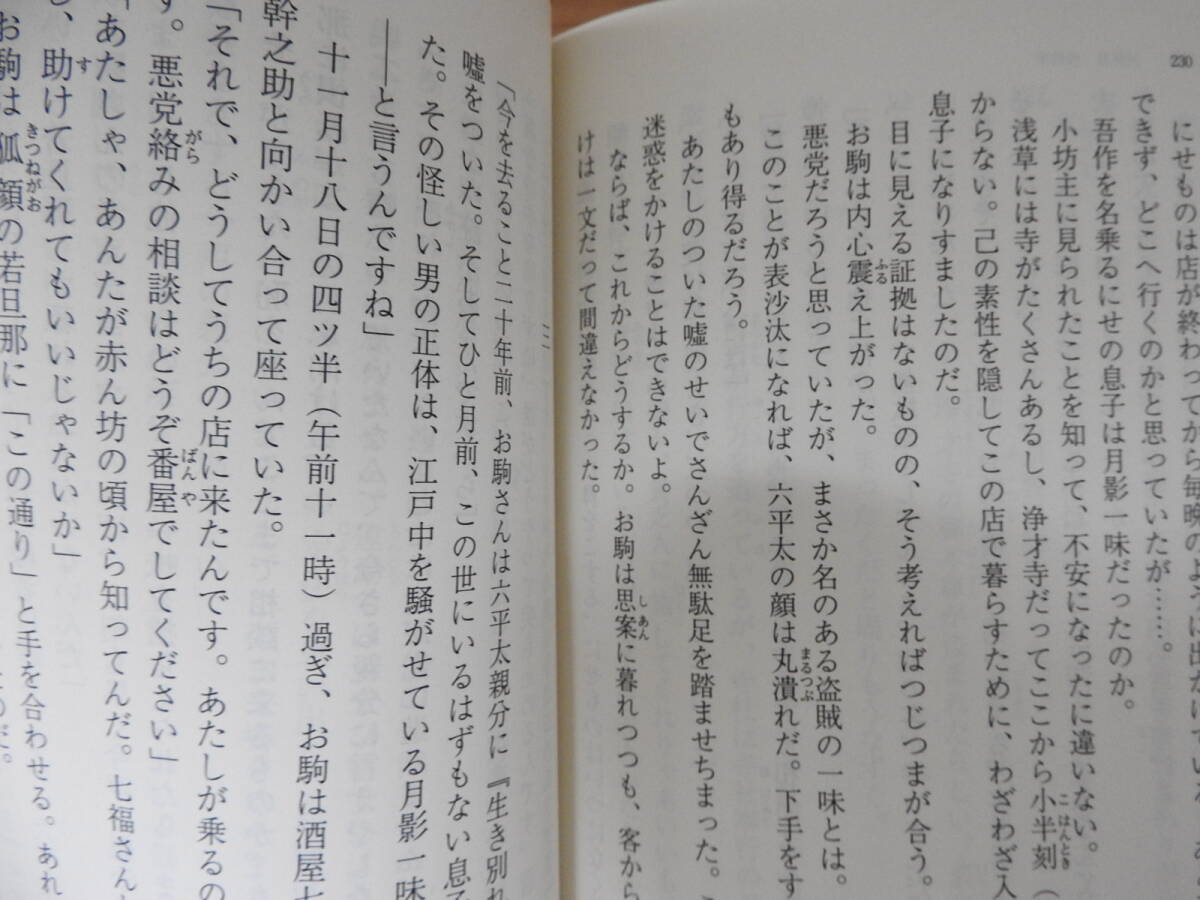 230
にせものは店が終わってから毎晩のように出かけている。
できず、どこへ行くのかと思っていたが……。
吾作を名乗るにせの息子は月影一味だったのか。
小坊主に見られたことを知って、不安になったに違いない。
浅草には寺がたくさんあるし、浄才寺だってここから小半刻（
からない。己の素性を隠してこの店で暮らすために、わざわざ入
息子になりすましたのだ。
目に見える証拠はないものの、そう考えればつじつまが合う。
お駒は内心震え上がった。
悪党だろうと思っていたが、まさか名のある盗賊の一味とは。
このことが表沙汰になれば、六平太の顔は丸潰れだ。下手をす
もあり得るだろう。
あたしのついた嘘のせいでさんざん無駄足を踏ませちまった。
迷惑をかけることはできないよ。
ならば、これからどうするか。お駒は思案に暮れつつも、客から
けは一文だって間違えなかった。
二
「今を去ること二十年前、お駒さんは六平太親分に『生き別れ
嘘をついた。そしてひと月前、この世にいるはずもない息子
た。その怪しい男の正体は、江戸中を騒がせている月影一味
――と言うんですね」
十一月十八日の四ツ半（午前十一時）過ぎ、お駒は酒屋七
幹之助と向かい合って座っていた。
「それで、どうしてうちの店に来たんです。あたしが乗るの
す。悪党絡みの相談はどうぞ番屋でしてください」
「あたしゃ、あんたが赤ん坊の頃から知ってんだ。七福さん
し、助けてくれてもいいじゃないか」
お駒は狐顔の若旦那に「この通り」と手を合わせる。あれ